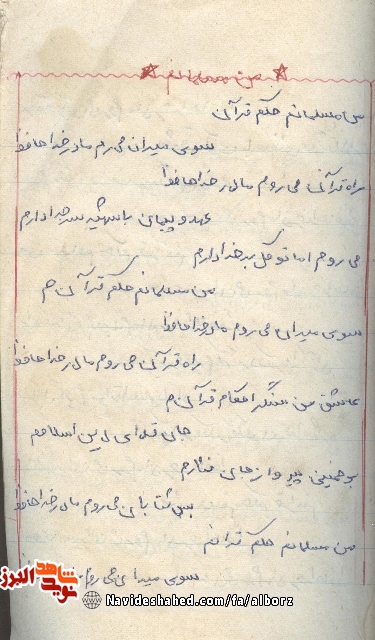 من مسلمانم
من مسلمانم حکم قرآنی
سوی میدان می روم مادر خداحافظ
راه قرآنی می روم مادر خداحافظ
عهد و پیمان با شهید سر جدا دارم
می روم اما توکل بر خدا دارم
من مسلمانم حکم قرآنی م
سوی میدان می روم مادر خداحافظ
راه قرآنی می روم مادر خداحافظ
عاشق من سنگر احکام قرآنی م
جان فدای دین اسلامم
بر خمینی پیرو از جان
شتابان می روم مادر خداحافظ
من مسلمانم حکم قرانم
سوی میدان می روم
نوید شاهد البرز
Navideshahed.com/fa/alborz